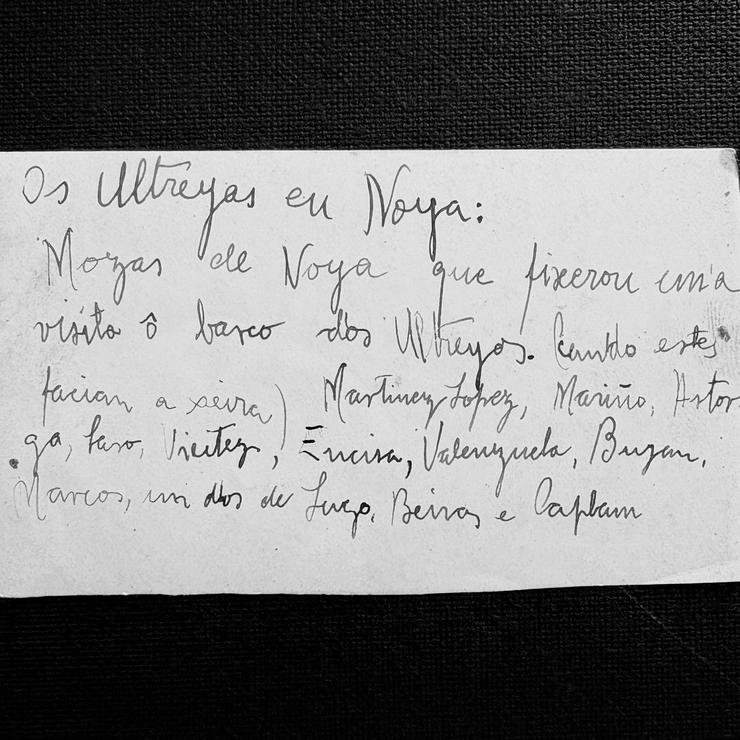 Os Ultreyas en Noya:
Mozas de Noya que fixerou unha
visita ô barco dos Ultreyas. Cando estes
facian a xeira) Martinez Lopez, Mariño, Astor-
ga, Saro, Vieitez, Encisa, Valenzuela, Bujan,
Marcos, un dos de Lugo, Beiras e Capban